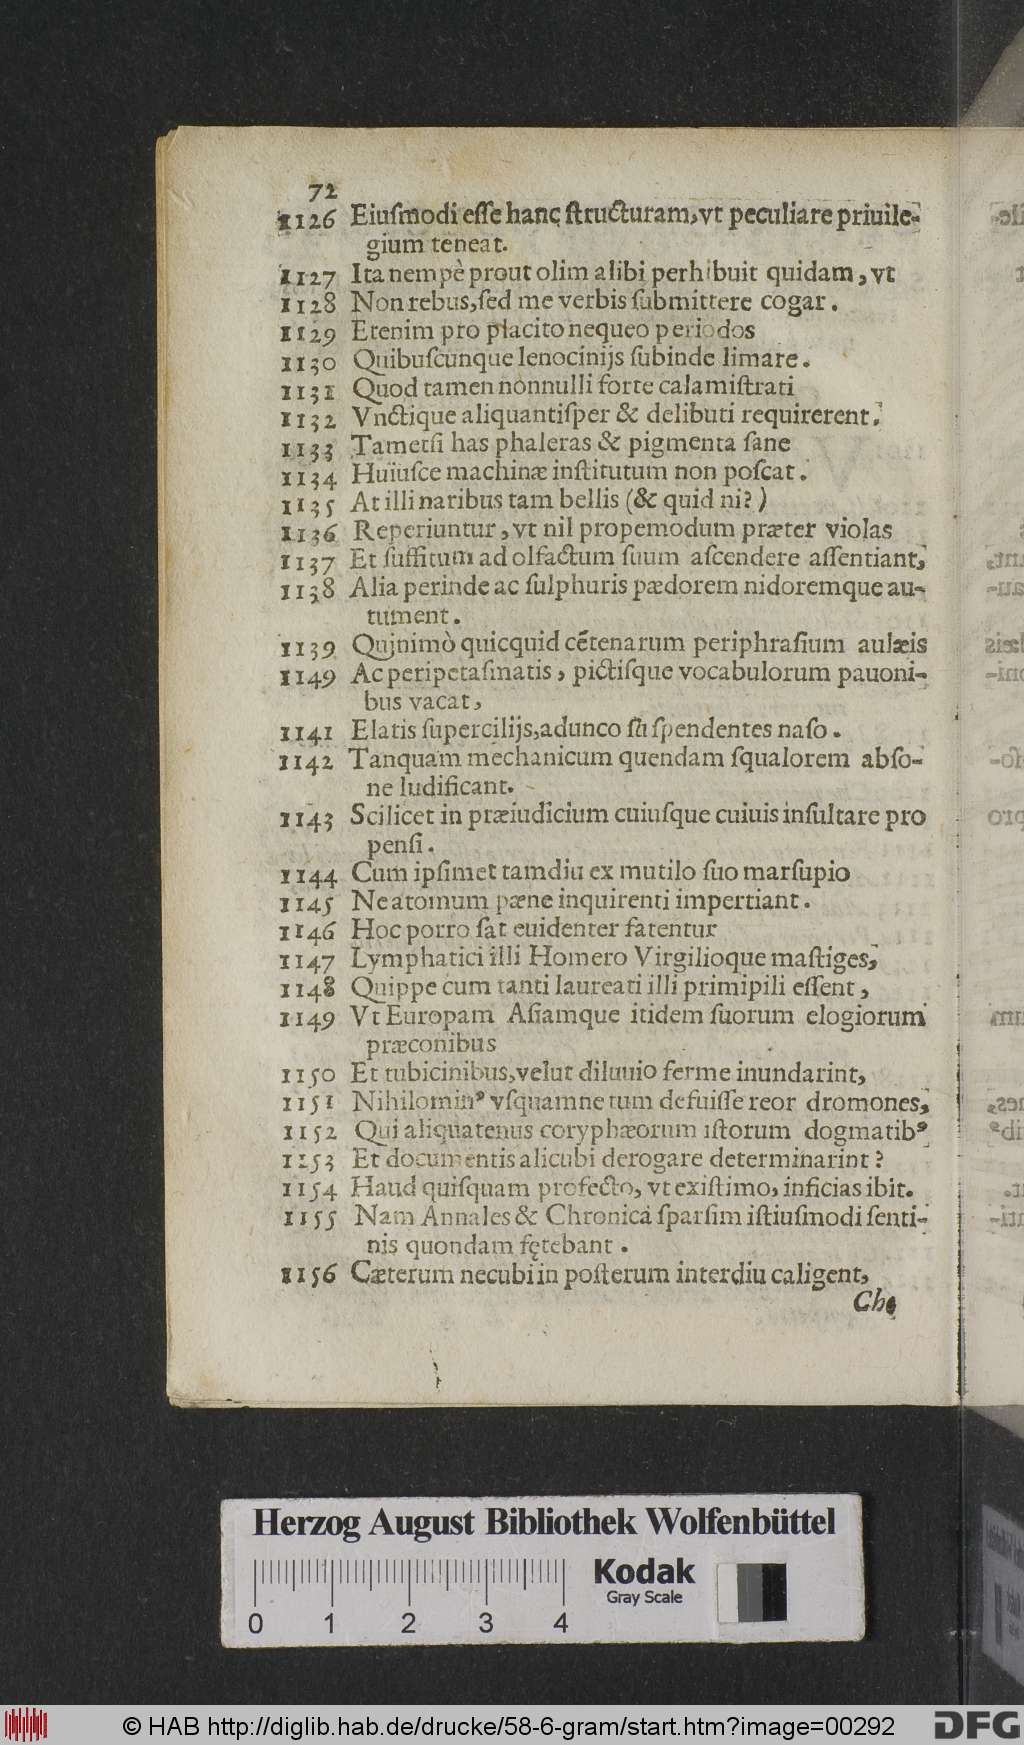 72
1126 Eiuſmodi eſſe hanc ſtructuram, vt peculiare priuile-
gium teneat.
1127 Ita nempè prout olim alibi perhibuit quidam, vt
1128 Non rebus, ſed me verbis ſubmittere cogar.
1129 Etenim pro placito nequeo periodos
1130 Quibuſcunque lenocinijs ſubinde limare.
1131 Quod tamen nonnulli forte calamiſtrati
1132 Vnctique aliquantiſper & delibuti requirerent.
1133 Tametſi has phaleras & pigmenta ſane
1134 Huiuſce machinæ inſtitutum non poſcat.
1135 At illi naribus tam bellis (& quid ni?)
1136 Reperiuntur, vt nil propemodum præter violas
1137 Et ſuffitum ad olfactum ſuum aſcendere aſſentiant,
1138 Alia perinde ac ſulphuris pædorem nidoremque au-
tument.
1139 Quinimò quicquid cētenarum periphraſium aulæis
1149 Ac peripetaſmatis, pictiſque vocabulorum pauoni-
bus vacat,
1141 Elatis ſupercilijs, adunco ſuſpendentes naſo.
1142 Tanquam mechanicum quendam ſqualorem abſo-
ne ludificant.
1143 Scilicet in præiudicium cuiuſque cuiuis inſultare pro
penſi.
1144 Cum ipſimet tamdiu ex mutilo ſuo marſupio
1145 Ne atomum pæne inquirenti impertiant.
1146 Hoc porro ſat euidenter fatentur
1147 Lymphatici illi Homero Virgilioque maſtiges,
1148 Quippe cum tanti laureati illi primipili eſſent,
1149 Vt Europam Aſiamque itidem ſuorum elogiorum
præconibus
1150 Et tubicinibus, velut diluuio ferme inundarint,
1151 Nihilominꝰ vſquamne tum defuiſſe reor dromones,
1152 Qui aliquatenus coryphæorum iſtorum dogmatibꝰ
1153 Et documentis alicubi derogare determinarint?
1154 Haud quiſquam profecto, vt exiſtimo, inficias ibit.
1155 Nam Annales & Chronica ſparſim iſtiuſmodi ſenti-
nis quondam fętebant.
1156 Cæterum necubi in poſterum interdiu caligent,
Che
Herzog August Bibliothek Wolfenbüttel
Kodak
Gray Scale
0 1 2 3 4
© HAB http://diglib.hab.de/drucke/58-6-gram/start.htm?image=00292
DFG